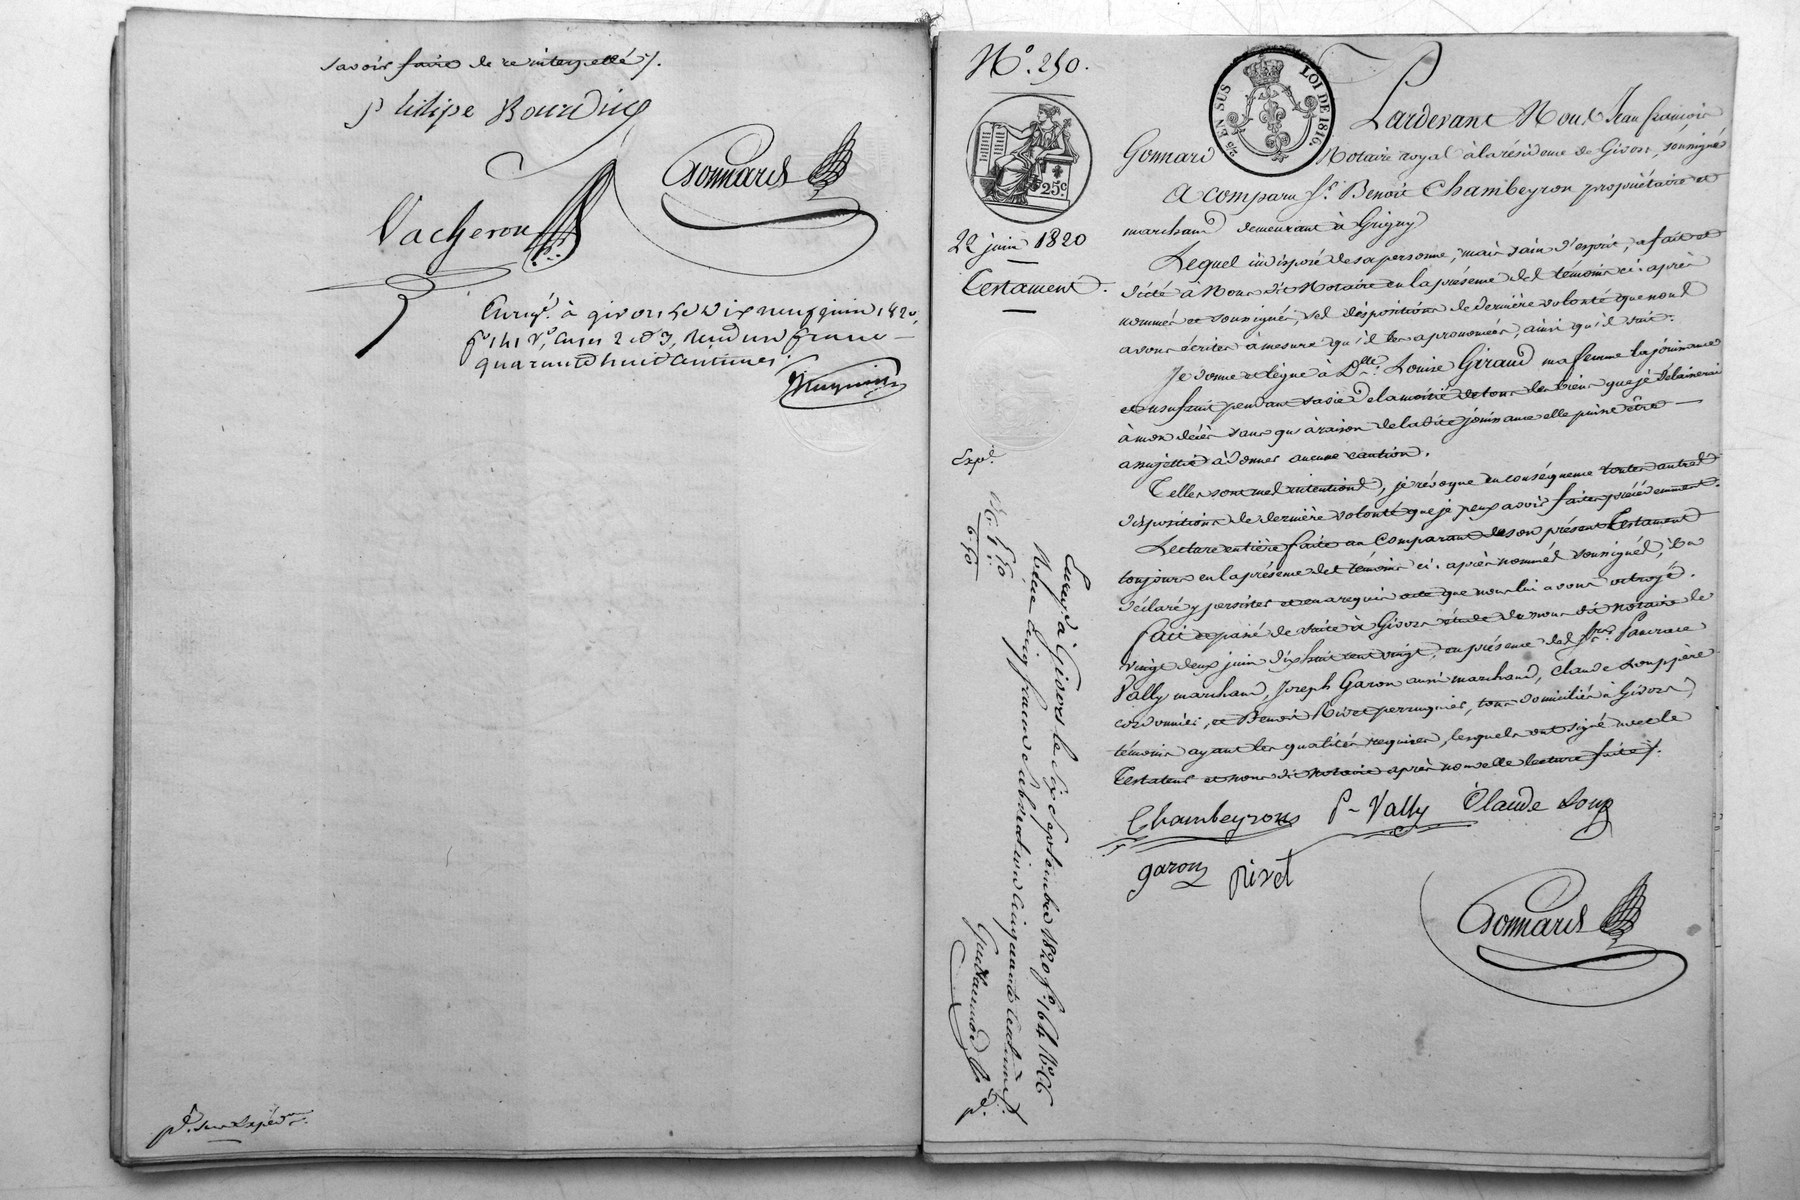 savoir faire de ce interpellé /.
philipe Bourdin
Gonnard
Vacheron
Enregé. à givors le dix neuf juin 1820,
fo 141 Vo, Cases 2 et 3, Reçu un franc
quarante huit centimes.
pd. sur
No. 250.
25 EN SUS
LOI DE 1816.
25c
22 juin 1820
Testament.
Expé.
Pardevant Nous Jean françois
Gonnard Notaire royal à la résidence de Givors, soussigné
A comparu Sr. Benoit Chambeyron propriétaire et
marchand demeurant à Grigny
Lequel indisposé de sa personne, mais sain d'esprit, a fait et
dicté à Nous dit Notaire en la présence des témoins ci-après
nommés et soussignés, ses dispositions de dernière volonté que nous
avons écrites à mesure qu'il les a prononcées, ainsi qu'il suit:
Je donne et lègue à Dlle. Louise Giraud ma femme la jouissance
et usufruit pendant sa vie de la moitié de tous les biens que je délaisserai
à mon décès sans qu'à raison de la dite jouissance elle puisse être
assujettie à donner aucune caution.
Telles sont mes intentions, je révoque en conséquence toutes autres
dispositions de dernière volonté que je peux avoir faites précédemment.
Lecture entière faite au Comparant de son présent Testament
toujours en la présence des témoins ci-après nommés soussignés, il a
déclaré y persister et en a requis acte que nous lui avons octroyé.
fait et passé de suite à Givors étude de nous dit notaire le
vingt deux juin dix huit cent vingt, en présence des Srs. Pancrace
Vally marchand, Joseph Garon aussi marchand, Claude Loup père
cordonnier, et Benoit Rivet perruquier, tous domiciliés à Givors,
témoins ayant les qualités requises, lesquels ont signé avec le
Testateur et nous dit notaire après nouvelle lecture faite /.
Chambeyron P- Vally Claude Loup
garon rivet
Gonnard
Enregé. à Givors le six Septembre 1820 fo. 164 Vo. C6
Reçu cinq francs et subvention cinquante centimes
Guillaumod